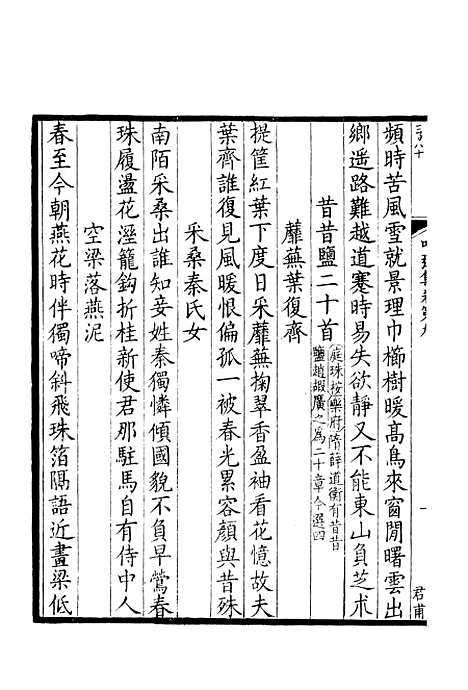 頻時苦風雪就景理巾櫛樹暖高鳥來窗閒曙雲出
鄉遥路難越道蹇時易失欲靜又不能東山負芝朮
昔昔鹽二十首庭珠按樂府隋薛道衡有昔昔
鹽趙嘏廣之為二十章今選四
蘼蕪葉復齊
提筐紅葉下度日采蘼蕪掬翠香盈袖看花憶故夫
葉齊誰復見風暖恨偏孤一被春光累容顔與昔殊
采桑秦氏女
南陌采桑出誰知妾姓秦獨憐傾國貌不負早鶯春
珠履盪花溼籠鈎折桂新使君那駐馬自有侍中人
空梁落燕泥
春至今朝燕花時伴獨啼斜飛珠箔隔語近畫梁低
君甫